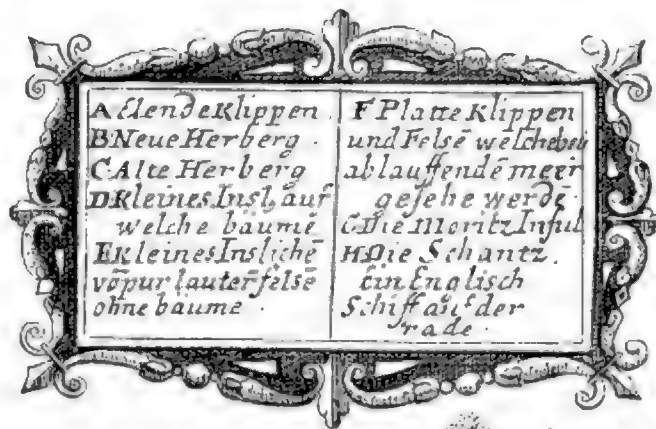 A Elende Klippen.
B Neue Herberg.
C Alte Herberg
D Kleines Insl, auf
welche bäume
E Kleines Inslichē
vō pur lauter felsē
ohne bäume.
F Platte Klippen
und Felsē welche bei
ablauffendē meer
gesehē werdē
C Die Moritz Insul
H Die Schantz.
Ein Englisch
Schiff auf der
rade.